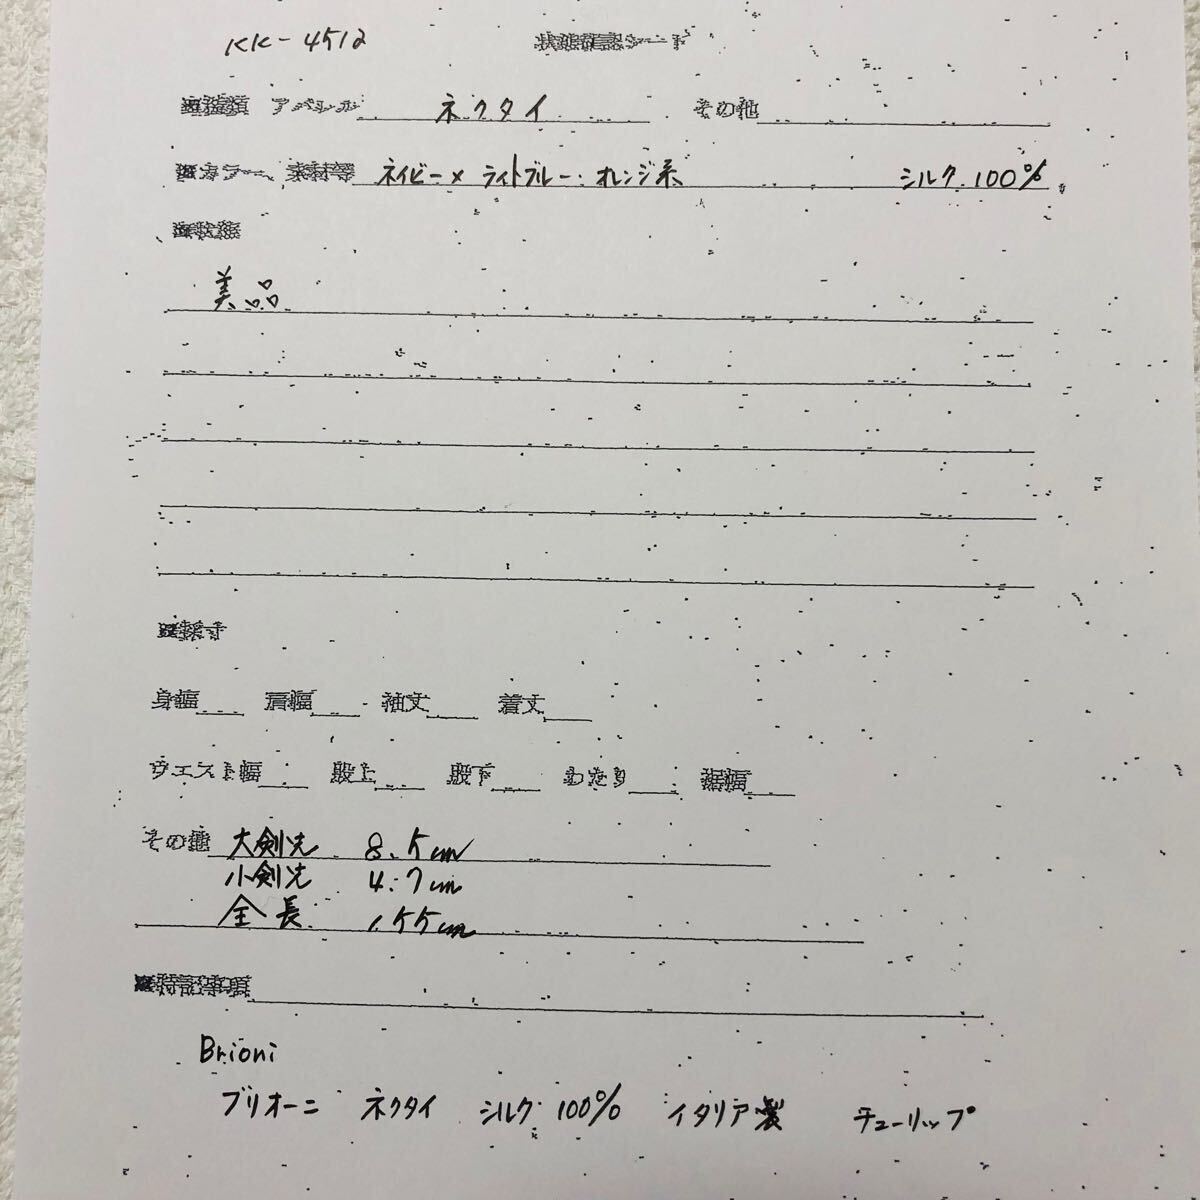 KK-4512 状態確認シート
■種類 アパレル ネクタイ その他
■カラー、素材等 ネイビー×ライトブルー・オレンジ系 シルク 100%
■状態
美品
■採寸
身幅 肩幅 袖丈 着丈
ウエスト幅 股上 股下 わたり 裾幅
その他 大剣先 8.5cm
小剣先 4.7cm
全長 155cm
■特記事項
Brioni
ブリオーニ ネクタイ シルク 100% イタリア製 チューリップ